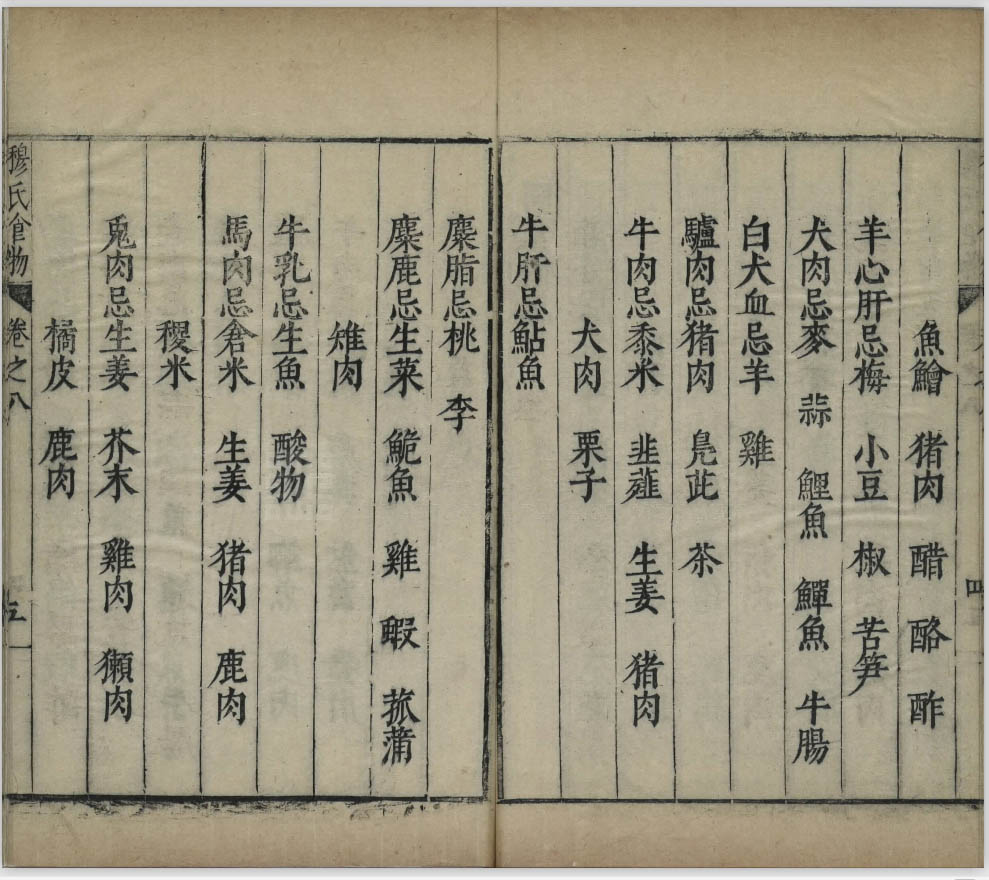 魚鱠 猪肉 醋 酪 酢
羊心肝忌梅 小豆 椒 苦笋
犬肉忌麥 蒜 鯉魚 鱓魚 牛腸
白犬血忌羊 雞
驢肉忌猪肉 鳬茈 茶
牛肉忌黍米 韭薤 生姜 猪肉
犬肉 栗子
牛肝忌鮎魚
麋脂忌桃 李
麋鹿忌生菜 鮠魚 雞 蝦 菰蒲
雉肉
牛乳忌生魚 酸物
馬肉忌倉米 生姜 猪肉 鹿肉
稷米
兎肉忌生姜 芥末 雞肉 獺肉
橘皮 鹿肉
穆氏食物 卷之八 五
四